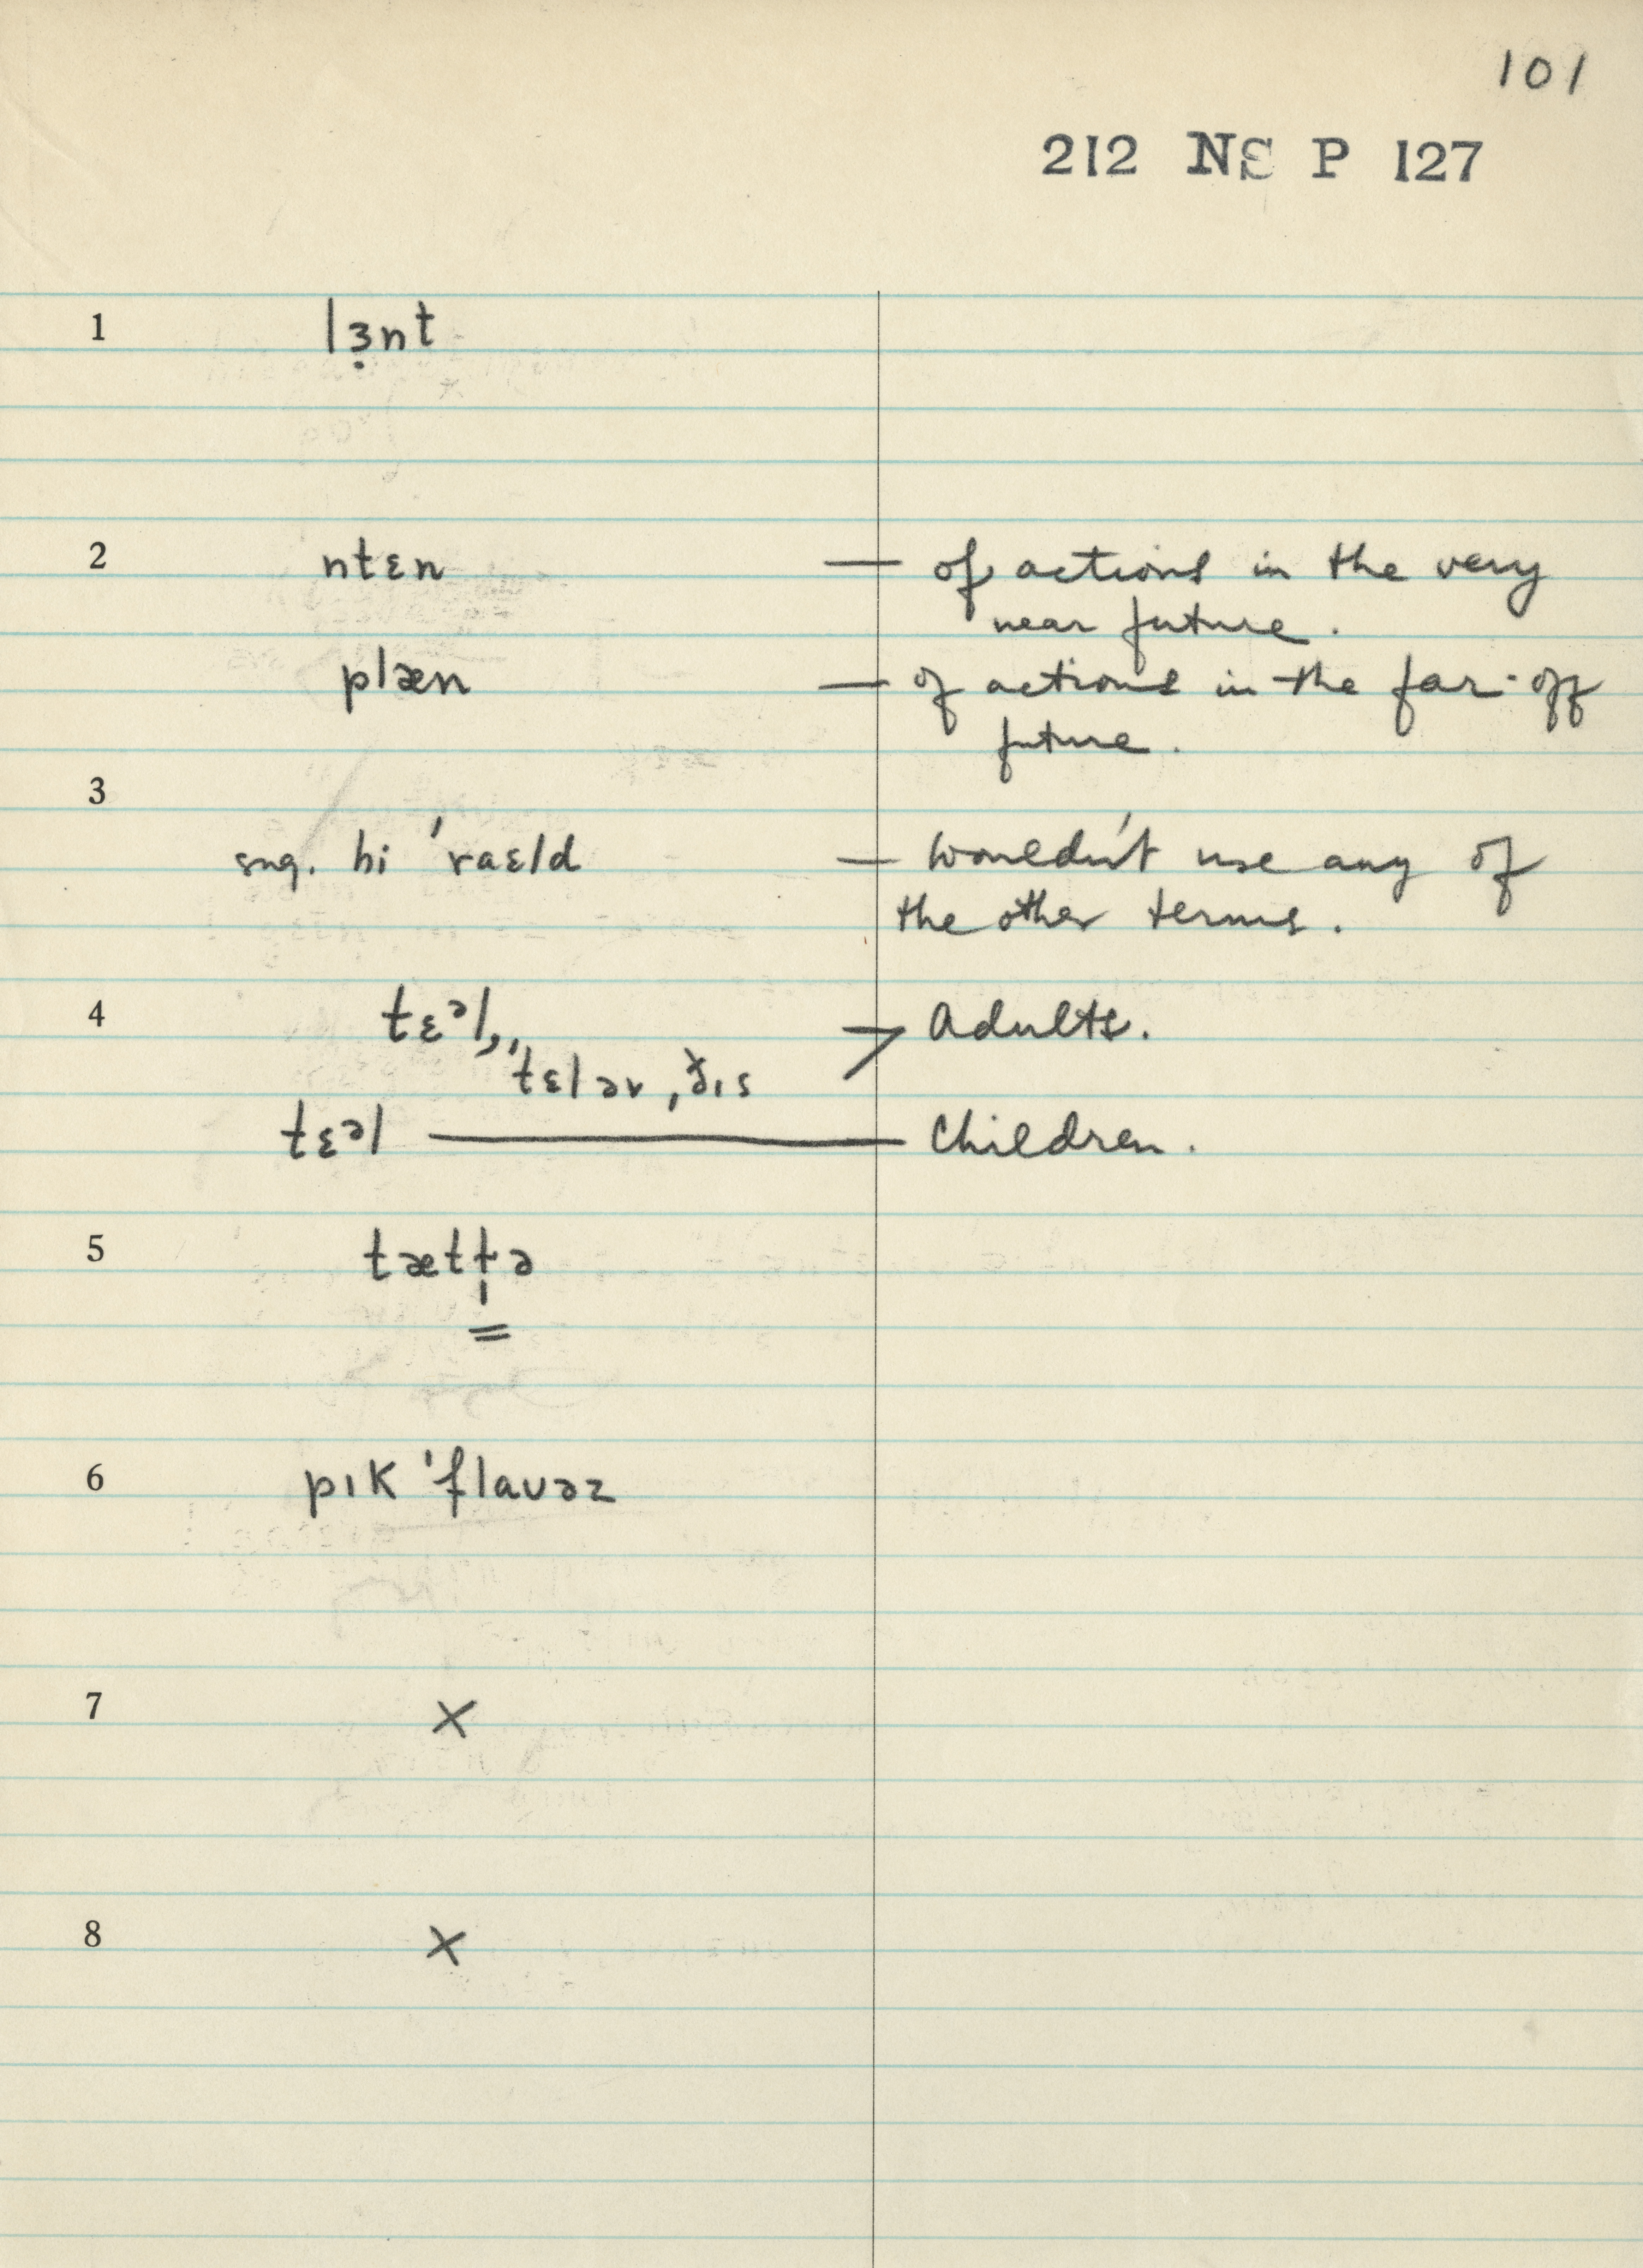 101
212 NS P 127
1 lɜ̣nt
2 ntɛn — of actions in the very
near future.
plæn — of actions in the far-off
future.
3
sug. hi ˈraɛld — wouldn't use any of
the other terms.
4 tɛᵊl, → Adults.
ˈtɛlər
tɛᵊl — Children.
5 tætt̵ə
=
6 pɪk ˈflauəz
7 ×
8 ×